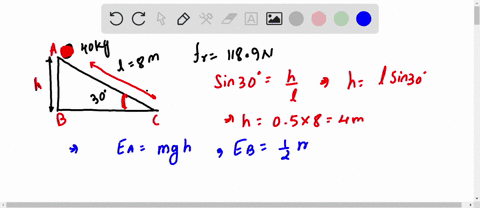 A 40kg l = 8m fr = 118.9N
h 30° Sin30° = h/l ⇒ h = l Sin30°
B C ⇒ h = 0.5×8 = 4m
⇒ EA = mgh , EB = 1/2 m